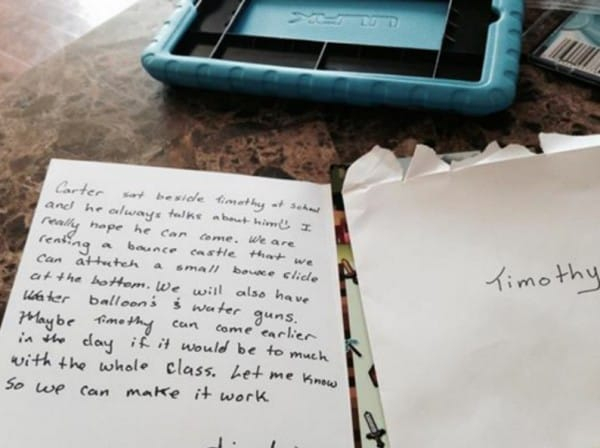 Carter sat beside Timothy at School
and he always talks about him! I
really hope he can come. We are
renting a bounce castle that we
can attatch a small bounce slide
at the bottom. We will also have
Water balloon's & water guns.
Maybe Timothy can come earlier
in the day if it would be to much
with the whole class. Let me know
So we can make it work
Timothy